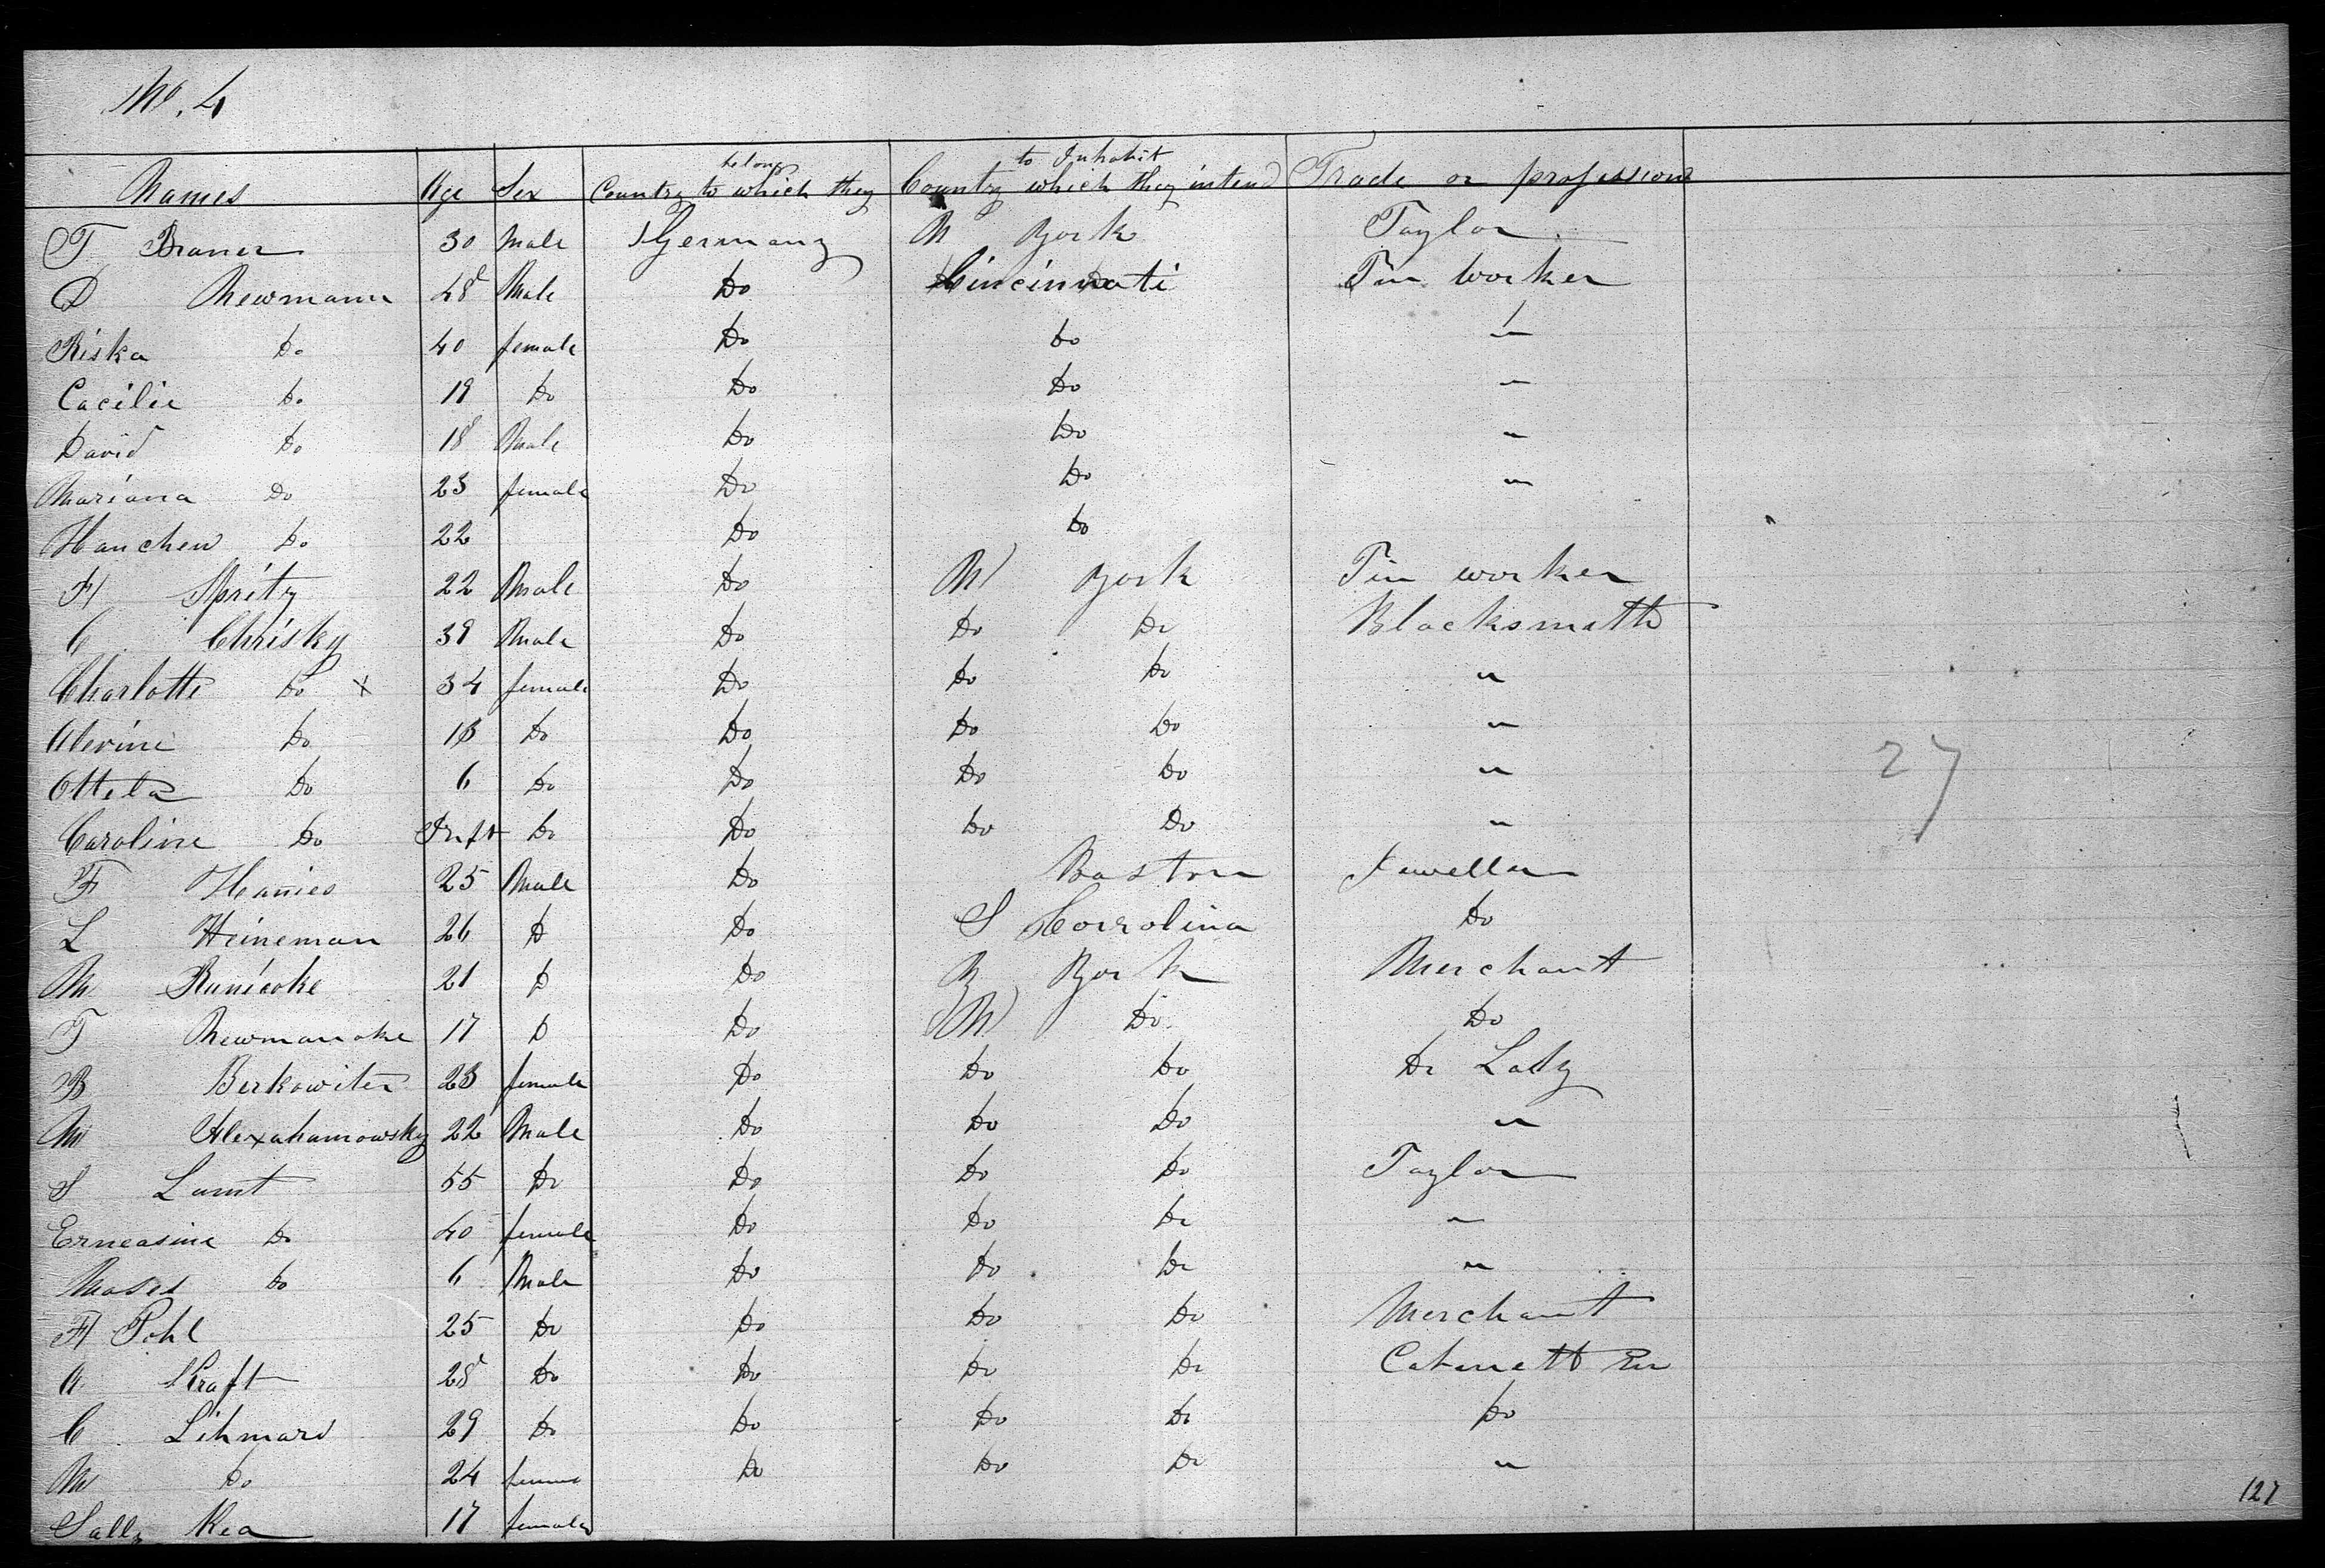 No. 4
Names Age Sex Country to which they belong Country which they intend to Inhabit Trade or profession
T Braner 30 Male Germany N York Taylor
D Newmann 48 Male Do Cincinnati Tin Worker
Riska Do 40 female Do Do "
Cacilie Do 19 Do Do Do "
David Do 18 Male Do Do "
Mariana Do 23 female Do Do "
Hanchen Do 22 Do Do
H Spritz 22 Male Do N York Tin worker
C Chrisky 39 Male Do Do Do Blacksmith
Charlotte Do x 34 female Do Do Do "
Alevine Do 13 Do Do Do Do "
Ottela Do 6 Do Do Do Do "
Caroline Do Inft Do Do Do Do "
F Hanies 25 Male Do Boston Jeweller
L Heineman 26 D Do S Carrolina Do
M 21 D Do N York Merchant
T Newmanoke 17 D Do N Do Do
B Berkowiter 23 female Do Do Do Do Lady
M Alexahamowsky 22 Male Do Do Do "
S Lamt 55 Do Do Do Do Taylor
Erneasine Do 40 female Do Do Do "
Moses Do 6 Male Do Do Do "
H Pohl 25 Do Do Do Do Merchant
A Kraft 28 Do Do Do Do Cabinett
C Lihmard 29 Do Do Do Do Do
M Do 24 Do Do Do "
Sally Kea 17 female
27
127